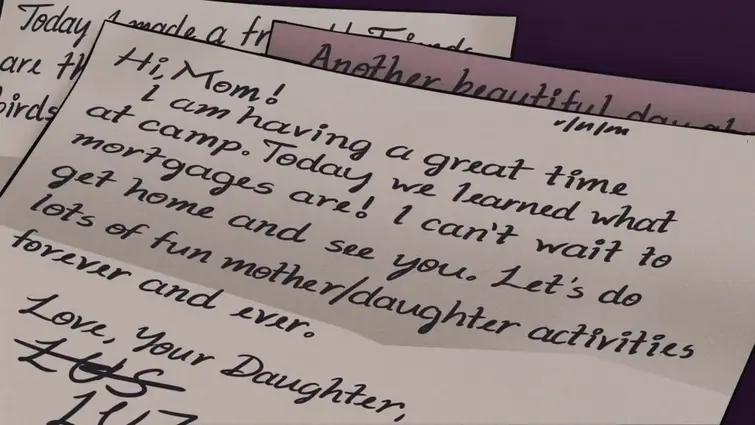 Today I made a
are
birds
Another beautiful
Hi, Mom!
I am having a great time
at camp. Today we learned what
mortgages are! I can't wait to
get home and see you. Let's do
lots of fun mother/daughter activities
forever and ever.
Love, Your Daughter,
LUS
LUZ